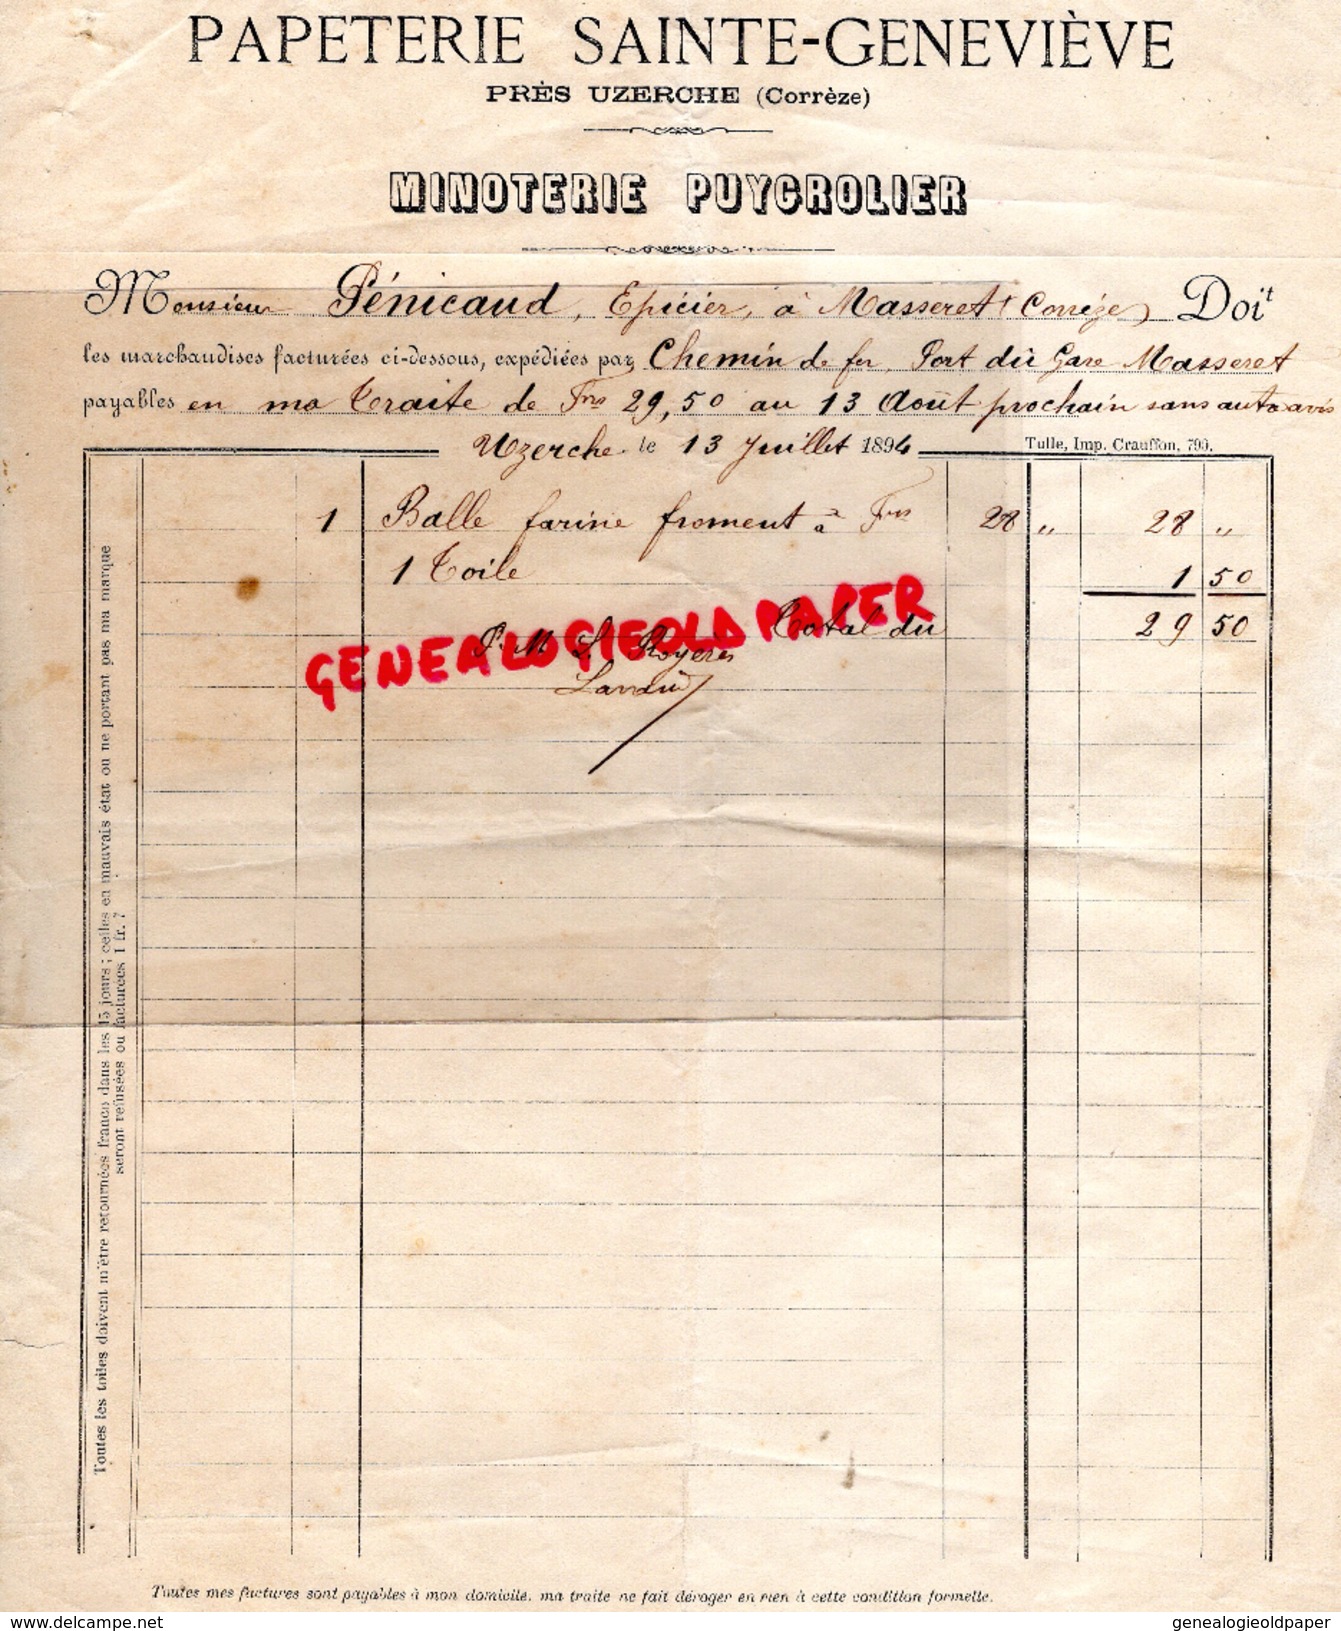 PAPETERIE SAINTE-GENEVIÈVE
PRÈS UZERCHE (Corrèze)
MINOTERIE PUYGROLIER
Monsieur Pénicaud, Epicier, à Masseret (Corrèze) Doit
les marchandises facturées ci-dessous, expédiées par Chemin de fer, Port dû Gare Masseret
payables en ma traite de Frs 29,50 au 13 Août prochain sans autre avis
Uzerche le 13 Juillet 1894
Tulle, Imp. Crauffon, 793.
1 Balle farine froment à Frs 28 " 28 "
1 Toile 1 50
Total du 29 50
GENEALOGIEOLDPAPER
P. M. L. Royères
Toutes les toiles doivent m'être retournées franco dans les 15 jours ; celles en mauvais état ou ne portant pas ma marque
seront refusées ou facturées 1 fr. ?
Toutes mes factures sont payables à mon domicile, ma traite ne fait déroger en rien à cette condition formelle.
www.delcampe.net
genealogieoldpaper